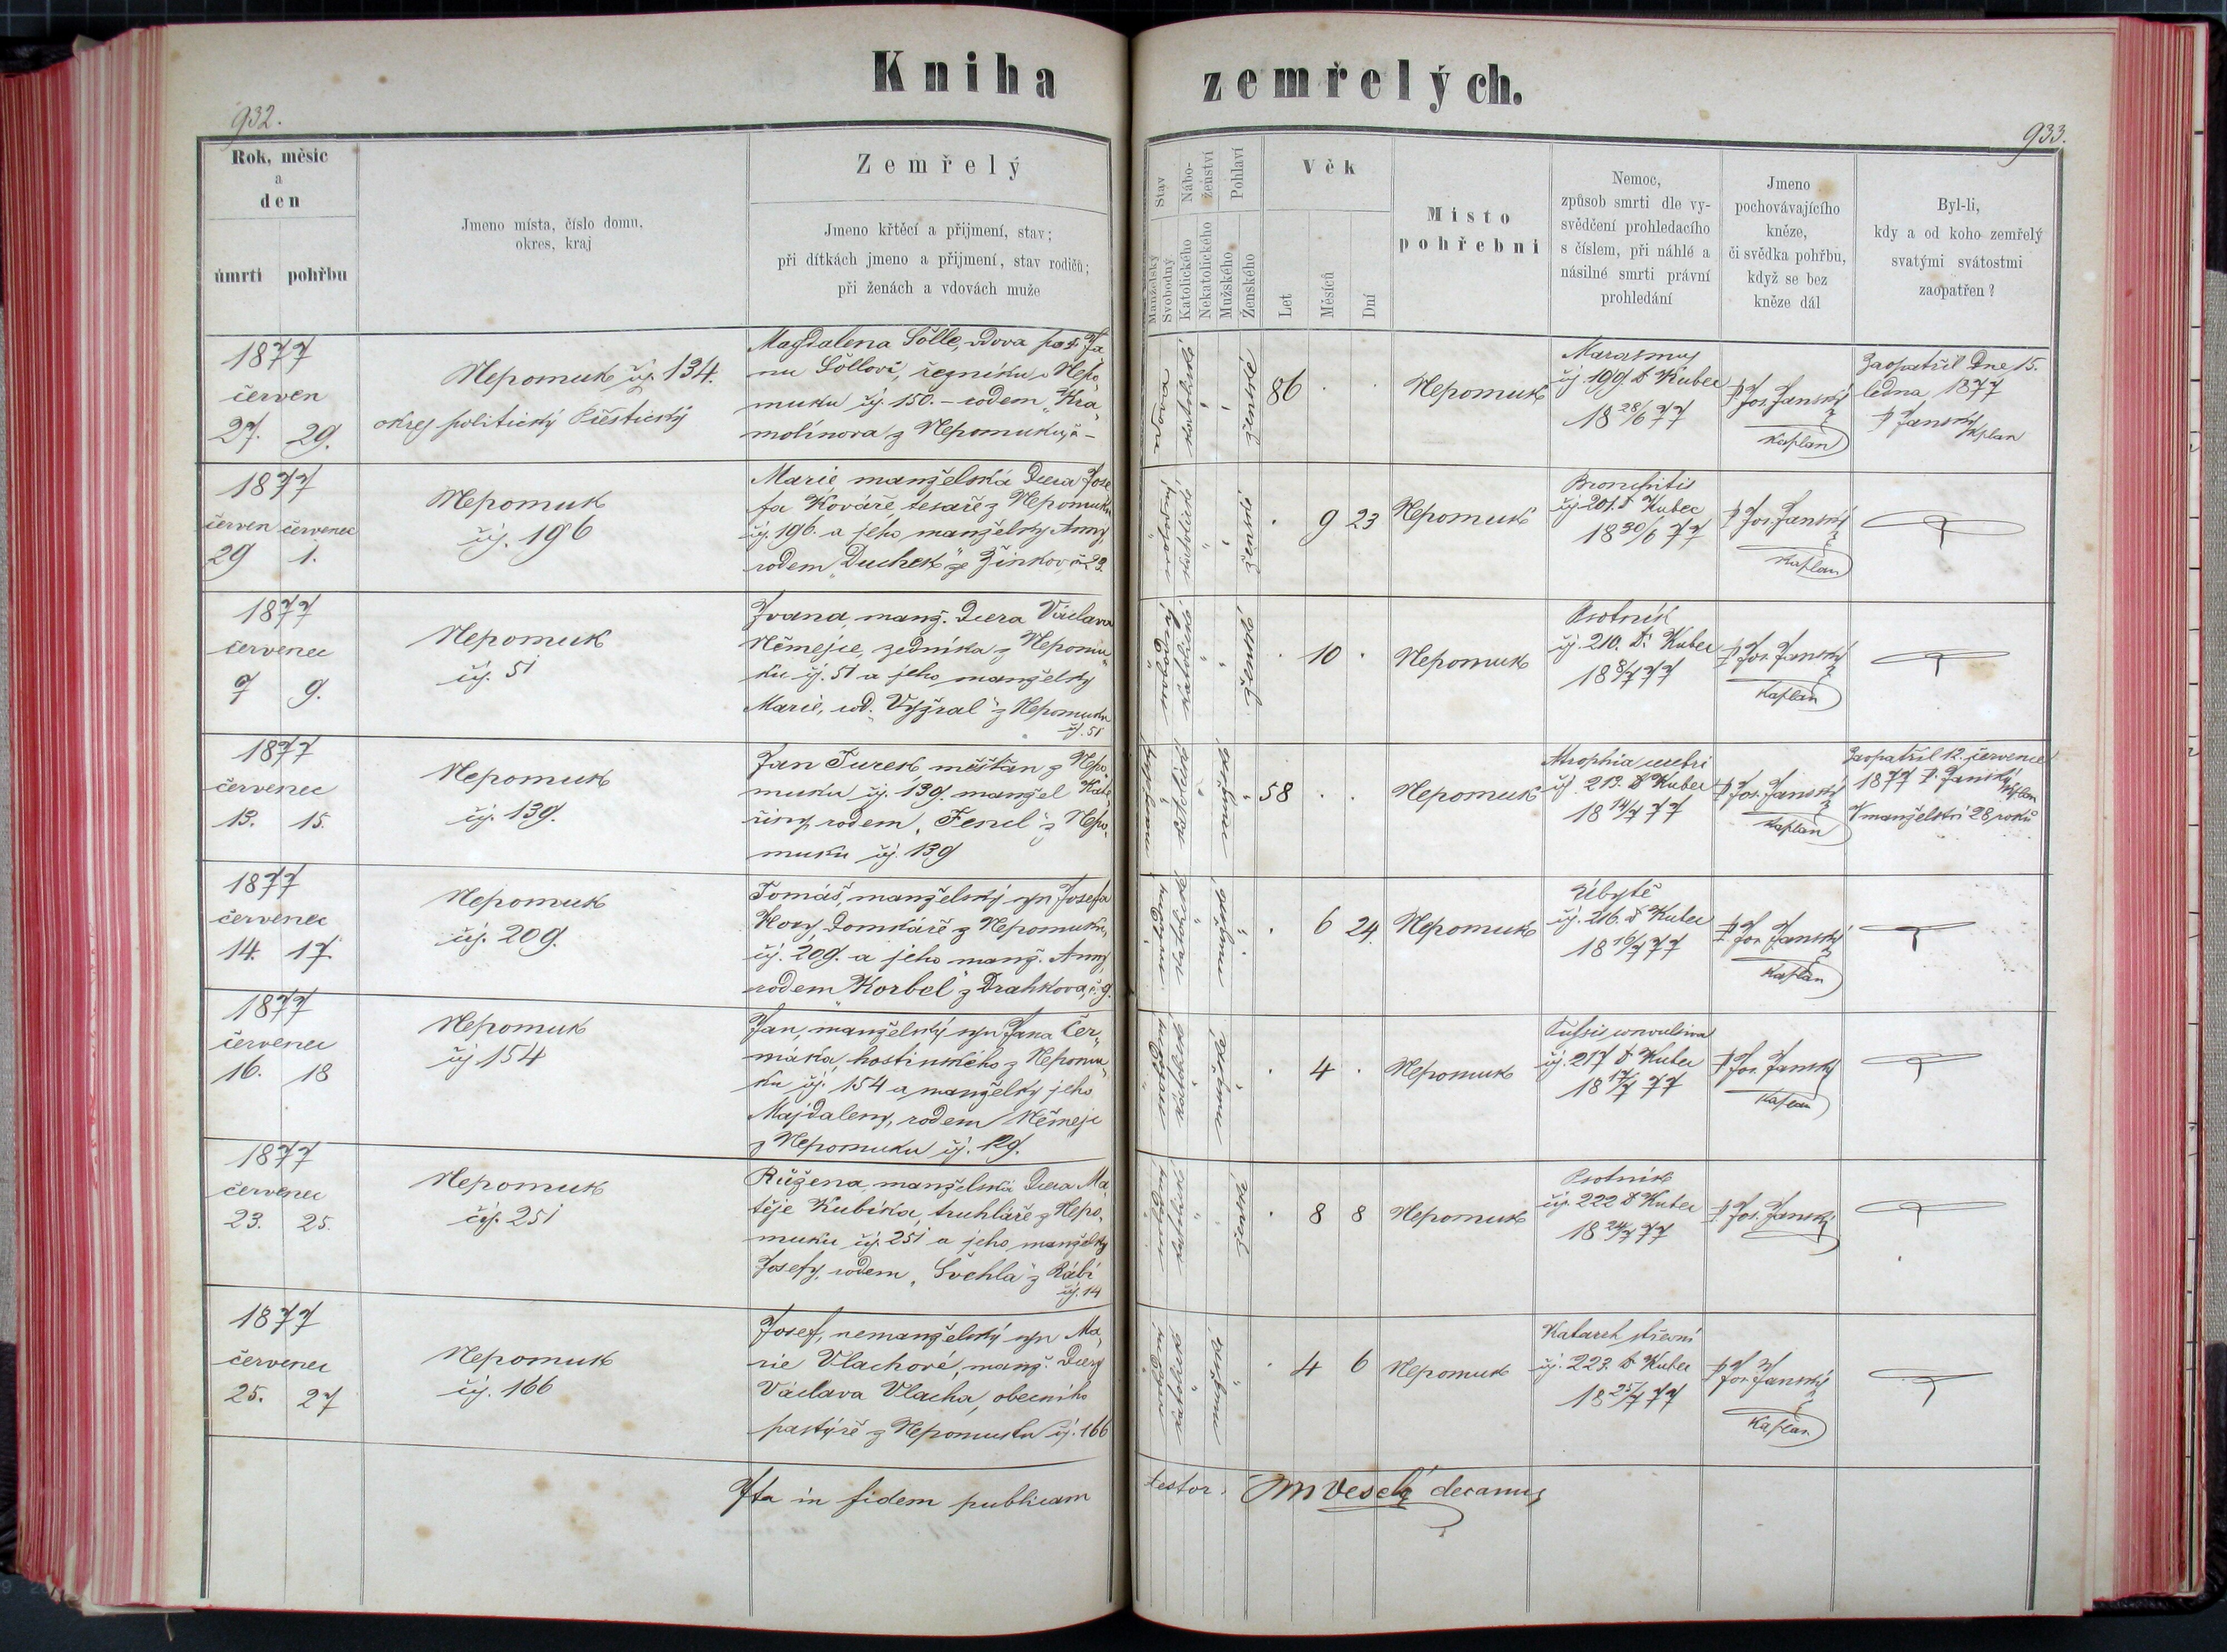 Kniha zemřelých.
932.
933.
Rok, měsíc
a
den
úmrtí pohřbu
Jmeno místa, číslo domu,
okres, kraj
Zemřelý
Jmeno křtěcí a přijmení, stav;
při dítkách jmeno a přijmení, stav rodičů;
při ženách a vdovách muže
Stav
Manželský
Svobodný
Nábo-
ženství
Katolického
Nekatolického
Pohlaví
Mužského
Ženského
Věk
Let
Měsíců
Dní
Místo
pohřební
Nemoc,
způsob smrti dle vy-
svědčení prohledacího
s číslem, při náhlé a
násilné smrti právní
prohledání
Jmeno
pochovávajícího
kněze,
či svědka pohřbu,
když se bez
kněze dál
Byl-li,
kdy a od koho zemřelý
svatými svátostmi
zaopatřen?
1877
červen
27. 29.
Nepomuk čj. 134.
okres politický Přeštický
Magdalena Šölle, vdova po Ja
nu Šöllovi, řezníku v Nepo„
muku čj. 150. – rodem „Kra„
molínova z Nepomuku
vdova
katolické
ženské
86 . .
Nepomuk
Marasmus
čj. 199. Dr Kubec
18 28/6 77
P Jos. Janský
kaplan
Zaopatřil Dne 15.
ledna 1877
P Janský
kplan
1877
červen červenec
29 1.
Nepomuk
čj. 196
Marie, manželská Dcera Jose
fa Kováře, tesaře z Nepomuku
čj. 196. a jeho manželky Anny,
rodem „Duchek“ ze Žinkov č. 23.
svobodný
katolické
ženské
. 9 23
Nepomuk
Bronchitis
čj. 201. Dr Kubec
18 30/6 77
P Jos. Janský
kaplan
1877
červenec
7 9.
Nepomuk
čj. 51
Ivana, manž. Dcera Václava
Němejce, zedníka z Nepomu„
ku čj. 51 a jeho manželky
Marie, rod. „Vyžral“ z Nepomuku
čj. 51
katolické
ženské
. 10 .
Nepomuk
Psotník
čj. 210. Dr Kubec
18 8/7 77
P Jos. Janský
kaplan
1877
červenec
13. 15.
Nepomuk
čj. 139.
Jan Turek, měšťan z Nepo„
muku čj. 139. manžel Kate„
řiny, rodem „Fencl“ z Nepo„
muku čj. 139
katolické
mužské
58 . .
Nepomuk
Atrophia cerebri
čj. 213. Dr Kubec
18 14/7 77
P Jos. Janský
kaplan
Zaopatřil 12. července
1877 P. Janský
kplan
V manželství 28 roků
1877
červenec
14. 17.
Nepomuk
čj. 209.
Tomáš, manželský syn Josefa
Hory, Domkáře z Nepomuku,
čj. 209. a jeho manž. Anny,
rodem „Korbel“ z Drahkova, č. 9.
katolické
mužské
. 6 24.
Nepomuk
Úbytě
čj. 216. Dr Kubec
18 16/7 77
P Jos. Janský
kaplan
1877
červenec
16. 18
Nepomuk
čj. 154
Jan, manželský syn Jana Čer„
máka, hostinského z Nepomu„
ku čj. 154 a manželky jeho
Majdaleny, rodem Němejc
z Nepomuku čj. 129.
katolické
mužské
. 4 .
Nepomuk
Tussis convulsiva
čj. 217 Dr Kubec
18 17/7 77
P Jos. Janský
kaplan
1877
červenec
23. 25.
Nepomuk
čj. 251
Růžena, manželská Dcera Ma„
těje Kubíka, truhláře z Nepo„
muku čj. 251 a jeho manželky
Josefy, rodem „Švehla“ z Rábí
čj. 14
katolické
ženské
. 8 8
Nepomuk
Psotník
čj. 222 Dr Kubec
18 24/7 77
P. Jos. Janský
1877
červenec
25. 27
Nepomuk
čj. 166
Josef, nemanželský syn Ma„
rie Vlachové, manž. Dcery
Václava Vlacha, obecního
pastýře z Nepomuku čj. 166
katolické
mužské
. 4 6
Nepomuk
Katarrh střevní
čj. 223. Dr Kubec
18 25/7 77
P Jos. Janský
kaplan
Ita in fidem publicam testor. Veselý decanus